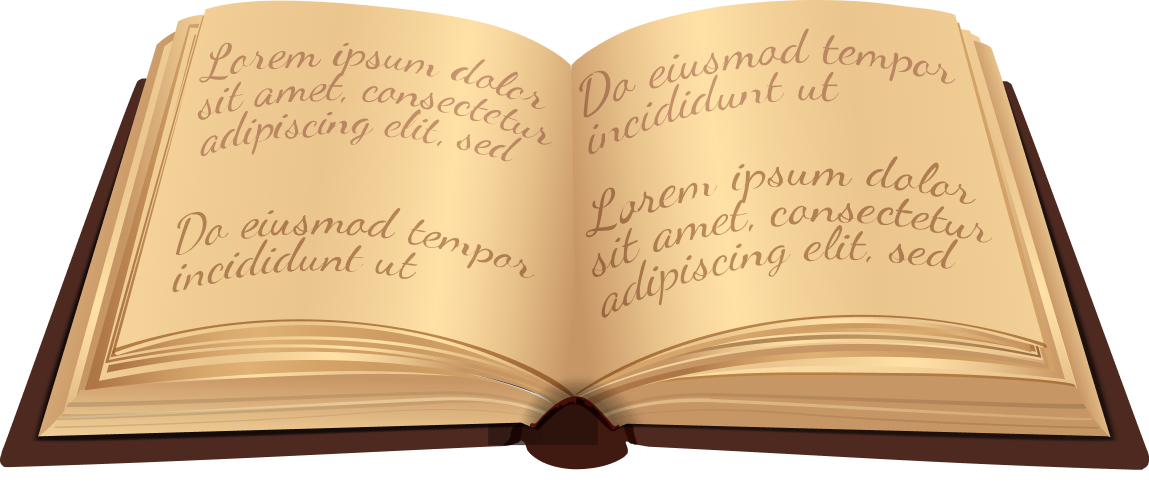 Lorem ipsum dolor
sit amet, consectetur
adipiscing elit, sed
Do eiusmod tempor
incididunt ut
Do eiusmod tempor
incididunt ut
Lorem ipsum dolor
sit amet, consectetur
adipiscing elit, sed